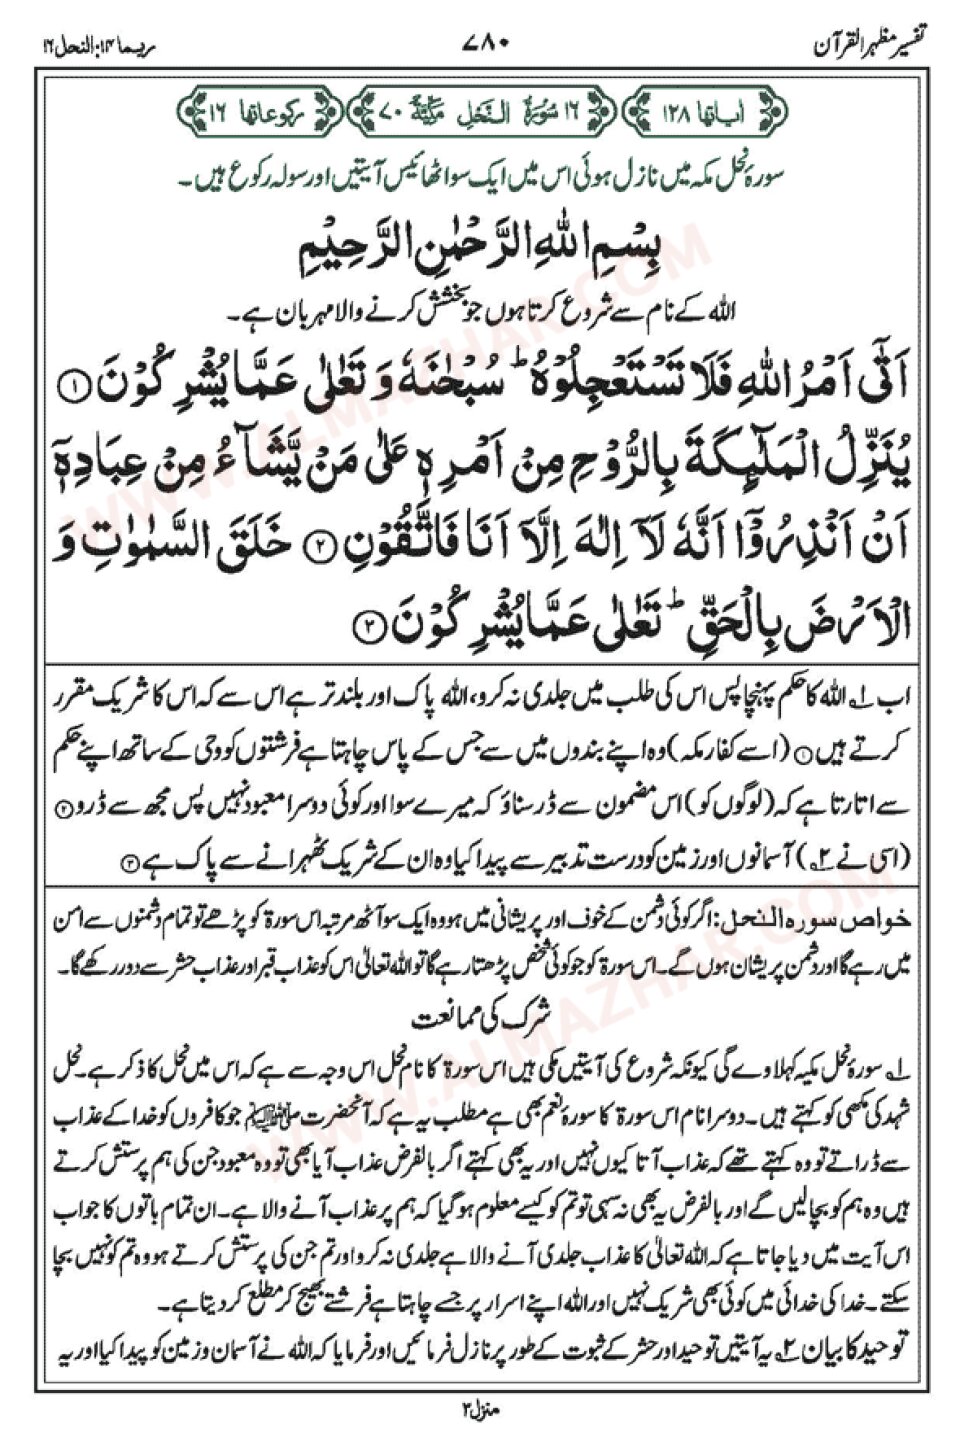 تفسیر مظہر القرآن
۷۸۰
ربما ۱۴: النحل ۱۶
اٰیاتھا ۱۲۸
۱۶ سُوْرَۃُ النَّحْلِ مَکِّیَّۃٌ ۷۰
رکوعاتھا ۱۶
سورۂ نحل مکہ میں نازل ہوئی اس میں ایک سو اٹھائیس آیتیں اور سولہ رکوع ہیں۔
بِسْمِ اللّٰهِ الرَّحْمٰنِ الرَّحِیْمِ
اللہ کے نام سے شروع کرتا ہوں جو بخشش کرنے والا مہربان ہے۔
اَتٰۤی اَمْرُ اللّٰهِ فَلَا تَسْتَعْجِلُوْهُ ؕ سُبْحٰنَهٗ وَ تَعٰلٰی عَمَّا یُشْرِكُوْنَ ۱
یُنَزِّلُ الْمَلٰٓىِٕكَةَ بِالرُّوْحِ مِنْ اَمْرِهٖ عَلٰی مَنْ یَّشَآءُ مِنْ عِبَادِهٖۤ
اَنْ اَنْذِرُوْۤا اَنَّهٗ لَاۤ اِلٰهَ اِلَّاۤ اَنَا فَاتَّقُوْنِ ۲ خَلَقَ السَّمٰوٰتِ وَ
الْاَرْضَ بِالْحَقِّ ؕ تَعٰلٰی عَمَّا یُشْرِكُوْنَ ۳
اب ۱؎ اللہ کا حکم پہنچا پس اس کی طلب میں جلدی نہ کرو، اللہ پاک اور بلند تر ہے اس سے کہ اس کا شریک مقرر
کرتے ہیں ۱ (اے کفار مکہ) وہ اپنے بندوں میں سے جس کے پاس چاہتا ہے فرشتوں کو وحی کے ساتھ اپنے حکم
سے اتارتا ہے کہ (لوگوں کو) اس مضمون سے ڈر سناؤ کہ میرے سوا اور کوئی دوسرا معبود نہیں پس مجھ سے ڈرو ۲
(اسی نے ۲؎) آسمانوں اور زمین کو درست تدبیر سے پیدا کیا وہ ان کے شریک ٹھہرانے سے پاک ہے ۳
خواص سورہ النحل: اگر کوئی دشمن کے خوف اور پریشانی میں ہو وہ ایک سو آٹھ مرتبہ اس سورۃ کو پڑھے تو تمام دشمنوں سے امن
میں رہے گا اور دشمن پریشان ہوں گے۔ اس سورۃ کو جو کوئی شخص پڑھتا رہے گا تو اللہ تعالیٰ اس کو عذاب قبر اور عذاب حشر سے دور رکھے گا۔
شرک کی ممانعت
۱؎ سورۂ نحل مکیہ کہلاوے گی کیونکہ شروع کی آیتیں مکی ہیں اس سورۃ کا نام نحل اس وجہ سے ہے کہ اس میں نحل کا ذکر ہے۔ نحل
شہد کی مکھی کو کہتے ہیں۔ دوسرا نام اس سورۃ کا سورۂ نعم بھی ہے مطلب یہ ہے کہ آنحضرت ﷺ جو کافروں کو خدا کے عذاب
سے ڈراتے تو وہ کہتے تھے کہ عذاب آتا کیوں نہیں اور یہ بھی کہتے اگر بالفرض عذاب آیا بھی تو وہ معبود جن کی ہم پرستش کرتے
ہیں وہ ہم کو بچا لیں گے اور بالفرض یہ بھی نہ سہی تو تم کو کیسے معلوم ہو گیا کہ ہم پر عذاب آنے والا ہے۔ ان تمام باتوں کا جواب
اس آیت میں دیا جاتا ہے کہ اللہ تعالیٰ کا عذاب جلدی آنے والا ہے جلدی نہ کرو اور تم جن کی پرستش کرتے ہو وہ تم کو نہیں بچا
سکتے۔ خدا کی خدائی میں کوئی بھی شریک نہیں اور اللہ اپنے اسرار پر جسے چاہتا ہے فرشتے بھیج کر مطلع کر دیتا ہے۔
توحید کا بیان ۲؎ یہ آیتیں توحید اور حشر کے ثبوت کے طور پر نازل فرمائیں اور فرمایا کہ اللہ نے آسمان و زمین کو پیدا کیا اور یہ
منزل ۳
WWW.ALMAZHAR.COM
WWW.ALMAZHAR.COM